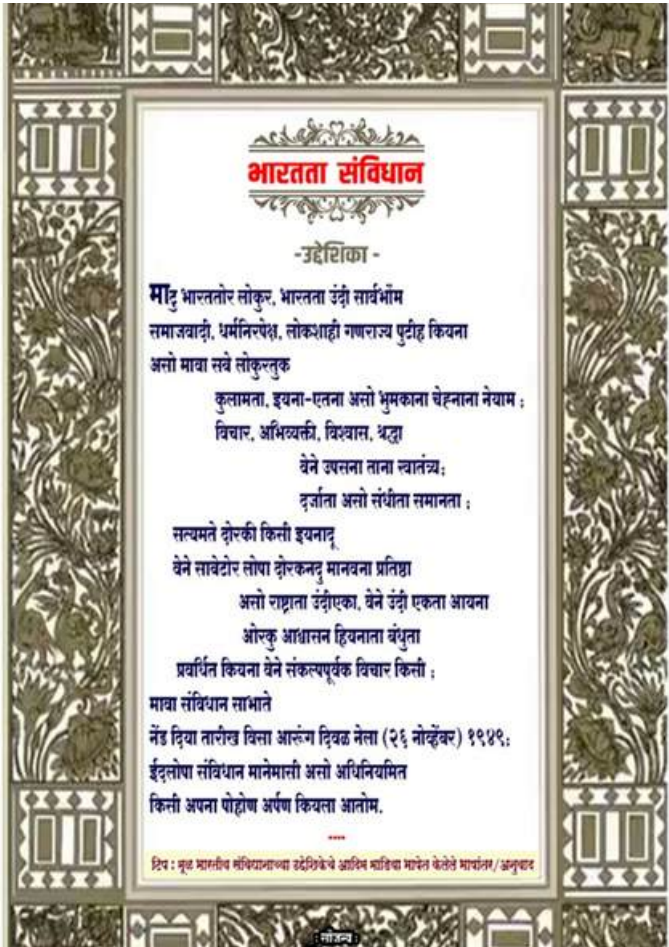 भारतता संविधान
-उद्देशिका -
माटु भारततोर लोकुर, भारतता उंदी सार्वभौम
समाजवादी, धर्मनिरपेक्ष, लोकशाही गणराज्य पुटीह कियना
असो मावा सवे लोकुरतुक
कुलामता, इयना-एतना असो भुमकाना चेह्नाना नेयाम ;
विचार, अभिव्यक्ती, विश्वास, श्रद्धा
वेने उपसना ताना स्वातंत्र्य;
दर्जाता असो संधीता समानता ;
सत्यमते दोरकी किसी इयनादू
वेने साबेटोर लोपा दोरकनदु मानवना प्रतिष्ठा
असो राष्ट्राता उंदीएका, वेने उंदी एकता आयना
ओरकु आश्वासन हियनाता बंधुता
प्रवर्धित कियना वेने संकल्पपूर्वक विचार किसी ;
मावा संविधान साभाते
नेंड दिया तारीख विसा आरूंग दिवळ नेला (२६ नोव्हेंबर) १९४९;
ईदलोपा संविधान मानेमासी असो अधिनियमित
किसी अपना पोहोण अर्पण कियला आतोम.
----
टिप : मूळ भारतीय संविधानाच्या उद्देशिकेचे आदिम माडिया भाषेत केलेले भाषांतर/अनुवाद